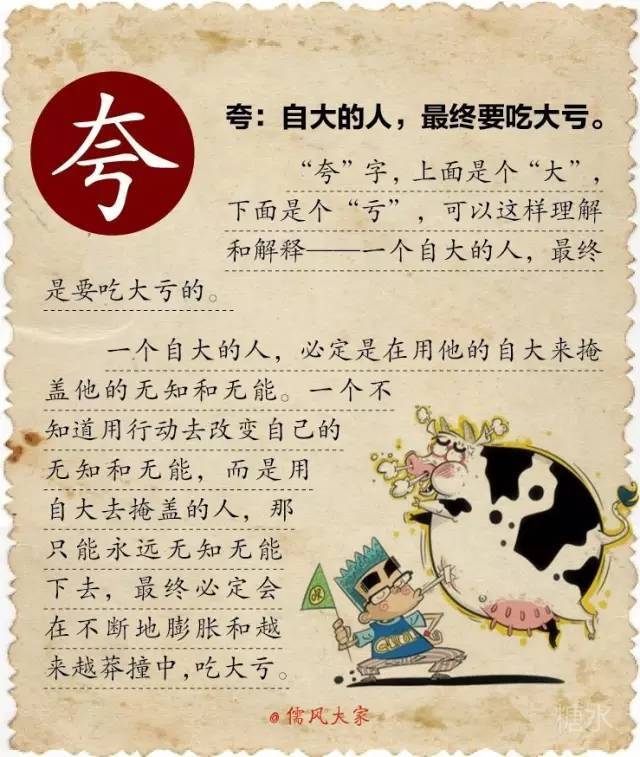 夸
夸：自大的人，最终要吃大亏。
“夸”字，上面是个“大”，
下面是个“亏”，可以这样理解
和解释——一个自大的人，最终
是要吃大亏的。
一个自大的人，必定是在用他的自大来掩
盖他的无知和无能。一个不
知道用行动去改变自己的
无知和无能，而是用
自大去掩盖的人，那
只能永远无知无能
下去，最终必定会
在不断地膨胀和越
来越莽撞中，吃大亏。
@儒风大家
糖水